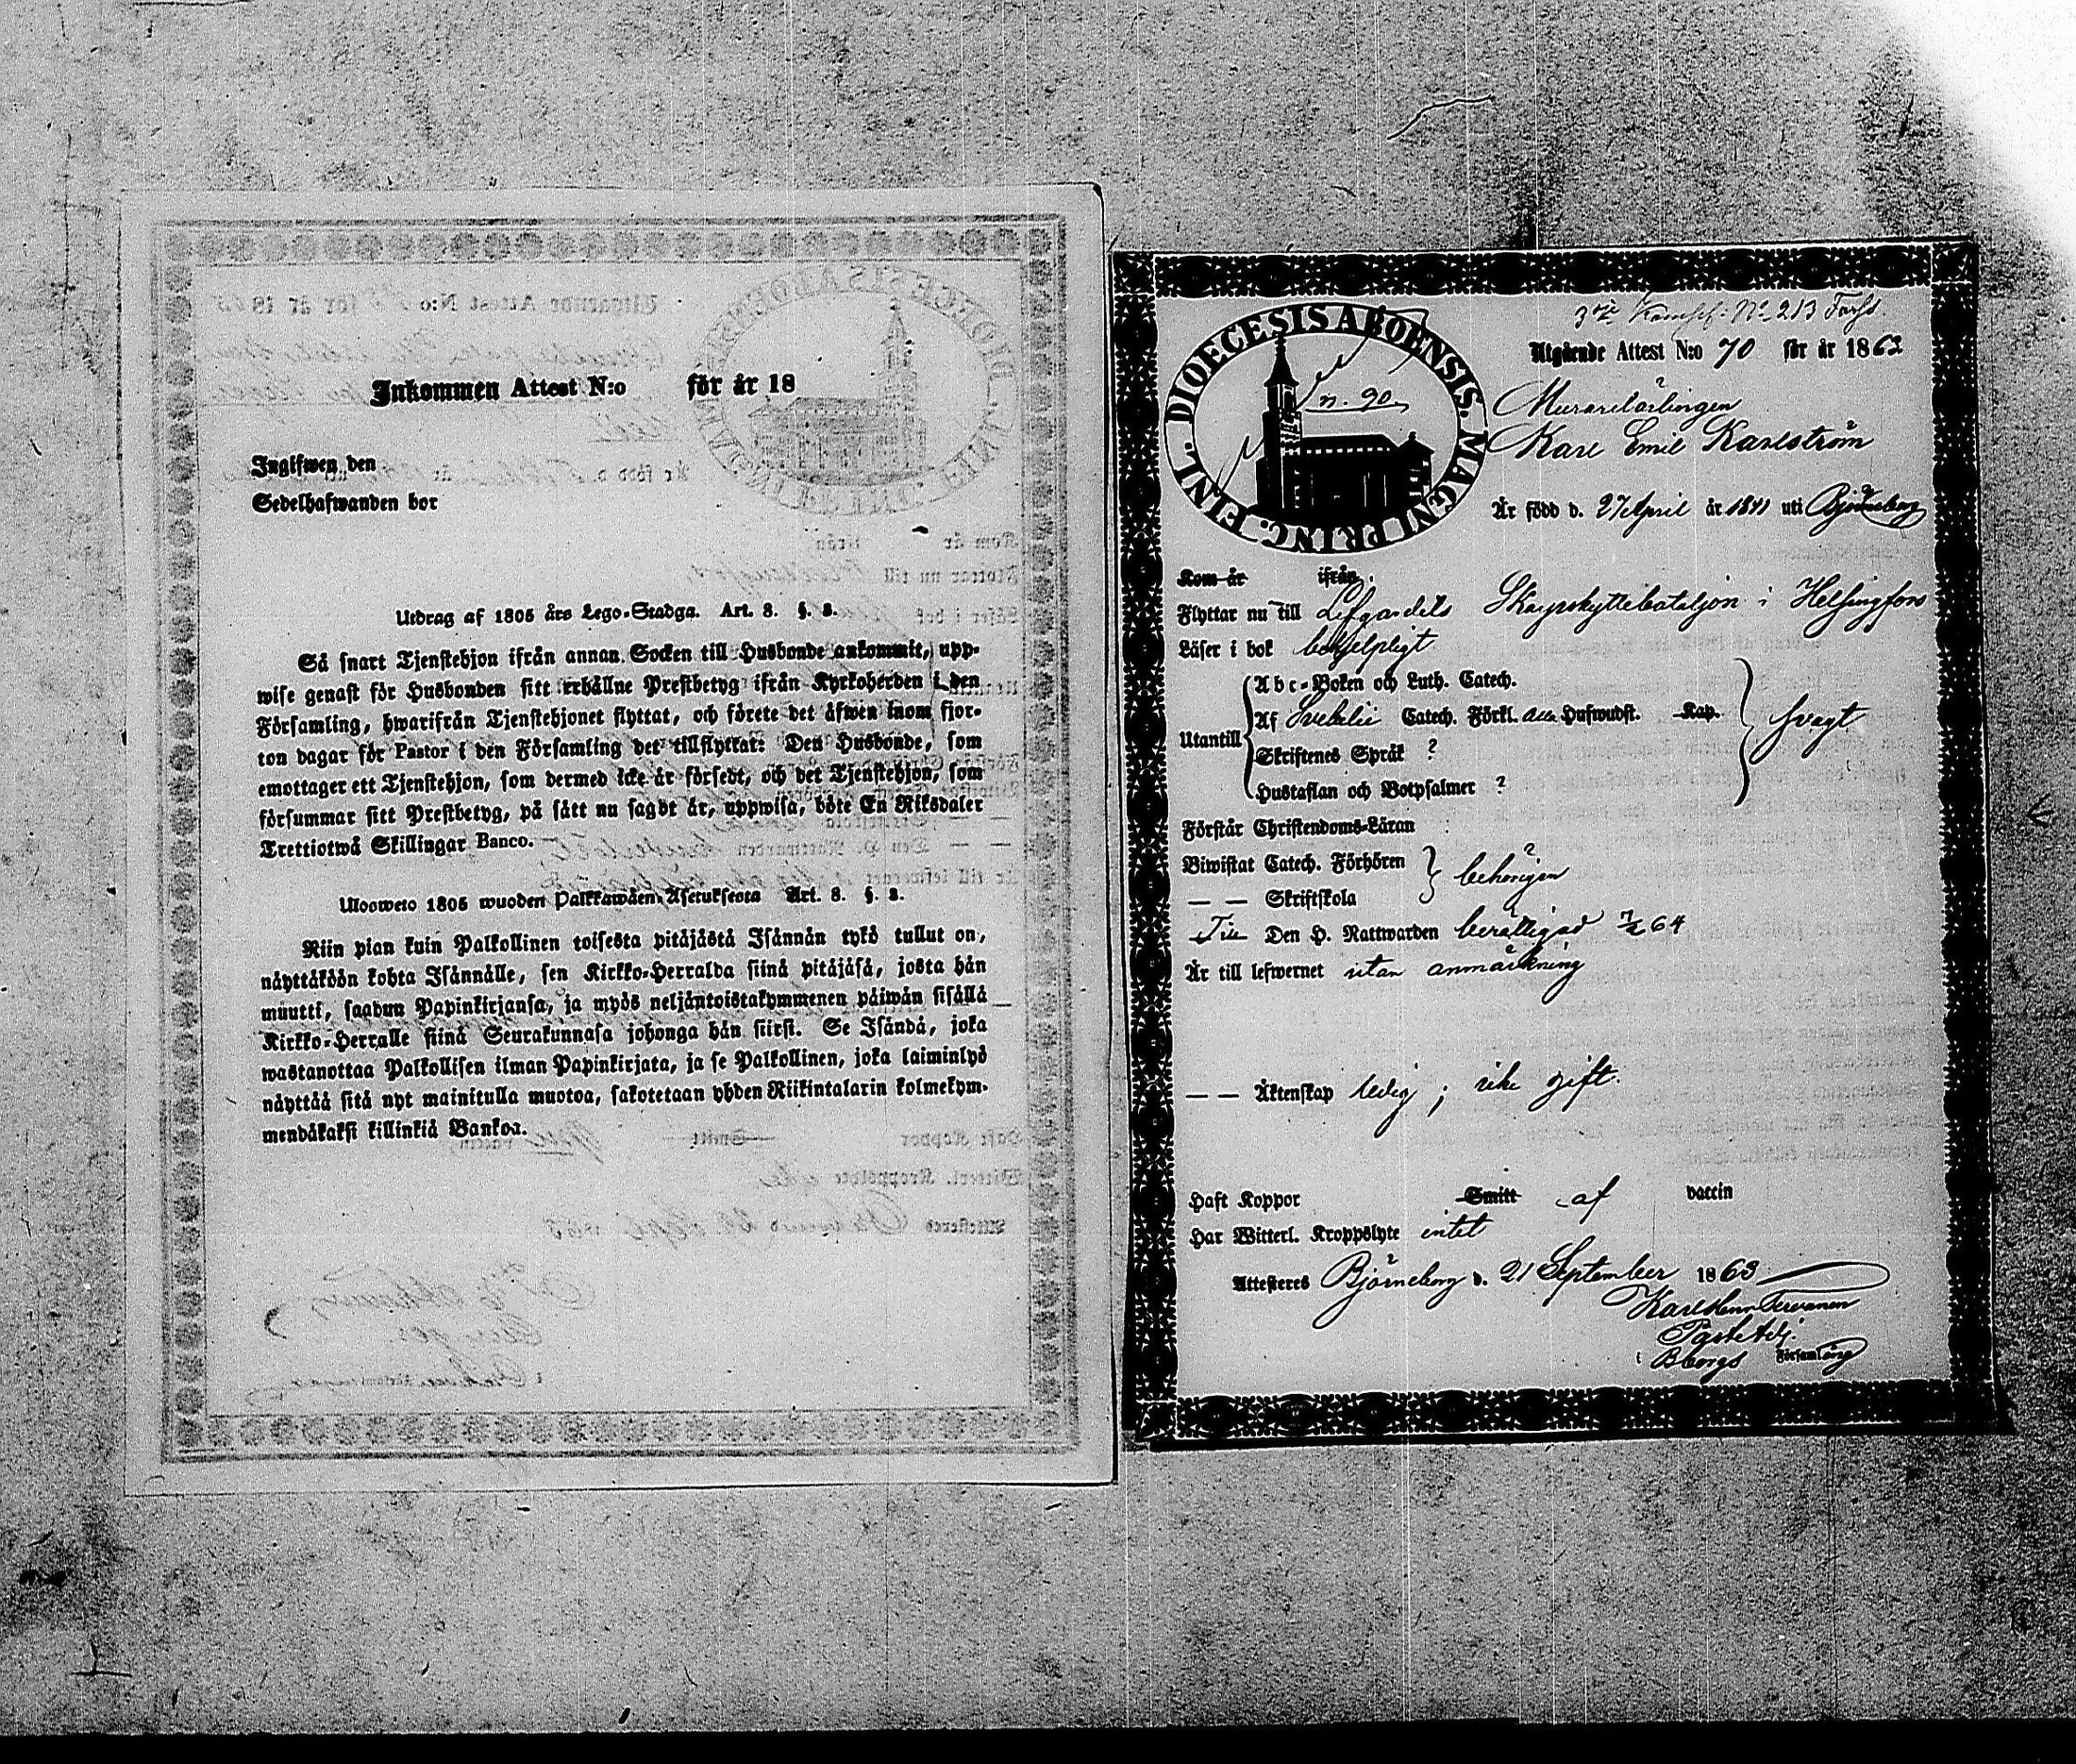 Inkommen Attest N:o för år 18
Ingifwen den
Sedelhafwanden bor
Utdrag af 1805 års Lego-Stadga. Art. 8. §. 8.
Så snart Tjenstehjon ifrån annan Socken till Husbonde ankommit, upp-
wise genast för Husbonden sitt erhållne Prestbetyg ifrån Kyrkoherden i den
Församling, hwarifrån Tjenstehjonet flyttat, och förete det äfwen inom fjor-
ton dagar för Pastor i den Församling det tillflyttat: Den Husbonde, som
emottager ett Tjenstehjon, som dermed icke är försedt, och det Tjenstehjon, som
försummar sitt Prestbetyg, på sätt nu sagdt är, uppwisa, böte En Riksdaler
Trettiotwå Skillingar Banco.
Ulosweto 1805 wuoden Palkkawäen Asetuksesta Art. 8. §. 8.
Niin pian kuin Palkollinen toisesta pitäjästä Isännän tykö tullut on,
näyttäköön kohta Isännälle, sen Kirkko-Herralda siinä pitäjäsä, josta hän
muutti, saadun Papinkirjansa, ja myös neljäntoistakymmenen päiwän sisällä
Kirkko-Herralle siinä Seurakunnasa johonga hän siirsi. Se Isändä, joka
wastanottaa Palkollisen ilman Papinkirjata, ja se Palkollinen, joka laiminlyö
näyttää sitä nyt mainitulla muotoa, sakotetaan yhden Riikintalarin kolmekym-
mendäkaksi killinkiä Bankoa.
3die Kompf: No 213 Forss.
Utgående Attest N:o 70 för år 1863
DIOECESIS ABOENSIS. MAGNI PRINC. FINL.
n. 90.
Murarelärlingen
Karl Emil Karlström
Är född d. 27 April år 1841 uti Björneborg
Kom år ifrån
Flyttar nu till Lifgardets Skarpskyttebataljon i Helsingfors
Läser i bok behjelpligt
Utantill
Abc-Boken och Luth. Catech.
Af Svebelii Catech. Förkl. alla Hufwudst. Kap.
Skriftenes Språk ?
Hustaflan och Botpsalmer ?
svagt
Förstår Christendoms-Läran
Biwistat Catech. Förhören
— — Skriftskola
behörigen
Till Den H. Nattwarden berättigad 7/2 64
Är till lefwernet utan anmärkning
— — Äktenskap ledig; icke gift.
Haft Koppor Smitt af vaccin
Har Witterl. Kroppslyte intet
Attesteres Björneborg d. 21 September 1863
Karl Henr Tervanen
Past: Adj.
i Bborgs Församling